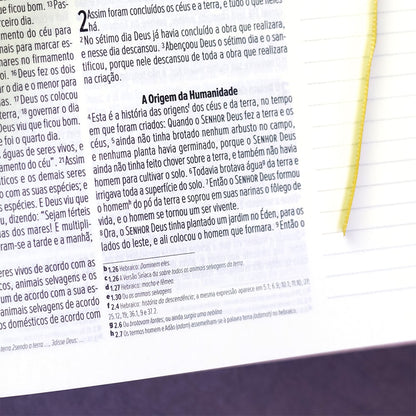 e ficou bom. 13Pas-
rceiro dia.
aja luminares no
ais para marcar es-
nares no firmamento
i. 16Deus fez os dois
ar o dia e o menor para
las. 17Deus os colocou
terra, 18governar o dia
Deus viu que ficou bom.
e foi o quarto dia.
águas de seres vivos, e
amento do céu". 21Assim
áticos e os demais seres
com as suas espécies; e
s espécies. E Deus viu que
u, dizendo: "Sejam férteis
uas dos mares! E multipli-
ram-se a tarde e a manhã;
eres vivos de acordo com as
animais selvagens e os
um de acordo com a sua es-
os animais selvagens de
os domésticos de acordo com
terra 2sendo a terra ..., 3disse Deus: ...
2 Assim foram concluídos os céus e a terra, e tudo o que neles
há.
2No sétimo dia Deus já havia concluído a obra que realizara,
e nesse dia descansou. 3Abençoou Deus o sétimo dia e o san-
tificou, porque nele descansou de toda a obra que realizara
na criação.
A Origem da Humanidade
4Esta é a história das origens f dos céus e da terra, no tempo
em que foram criados: Quando o SENHOR Deus fez a terra e os
céus, 5ainda não tinha brotado nenhum arbusto no campo,
e nenhuma planta havia germinado, porque o SENHOR Deus
ainda não tinha feito chover sobre a terra, e também não havia
homem para cultivar o solo. 6Todavia brotava água g da terra e
irrigava toda a superfície do solo. 7Então o SENHOR Deus formou
o homem h do pó da terra e soprou em suas narinas o fôlego de
vida, e o homem se tornou um ser vivente.
8Ora, o SENHOR Deus tinha plantado um jardim no Éden, para os
lados do leste, e ali colocou o homem que formara. 9Então o
b 1.26 Hebraico: Dominem eles.
c 1.26 A Versão Siríaca diz sobre todos os animais selvagens da terra.
d 1.27 Hebraico: macho e fêmea.
e 1.30 Ou os animais selvagens
f 2.4 Hebraico: história da descendência; a mesma expressão aparece em 5.1; 6.9; 10.1; 11.10, 27;
25.12, 19; 36.1, 9 e 37.2.
g 2.6 Ou brotavam fontes; ou ainda surgia uma neblina
h 2.7 Os termos homem e Adão (adam) assemelham-se à palavra terra (adamah) no hebraico.